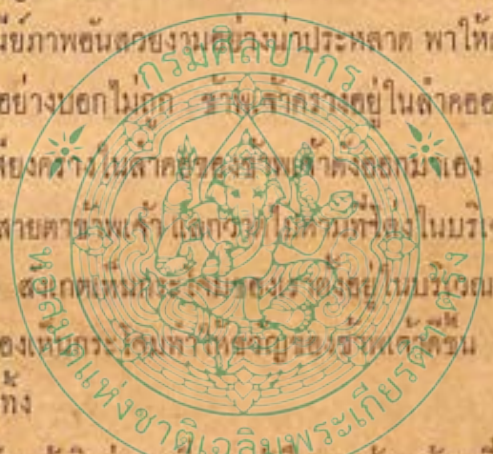 นียภาพอันสวยงามอย่างน่าประหลาด พาให้
อย่างบอกไม่ถูก ข้าพเจ้าครางอยู่ในลำคออ
สียงครางในลำคอของข้าพเจ้าดังออกมาเอง
สายตาข้าพเจ้า แลกวาดไปตามที่ซึ่งในบริเ
สังเกตเห็นกระโจมของเราตั้งอยู่ในบริเวณ
องเห็นกระโจมทำให้ขวัญของข้าพเจ้าดีขึ้น
ทั้ง
กรมศิลปากร
แห่งชาติเฉลิมพระเกียรติ